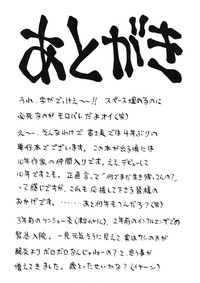 あとがき
うわ、字がでっけぇ〜!! スペース埋めるのに
必死なのがモロバレだよオイ(笑)
え〜、そんなわけで富士美では4年ぶりの
単行本でございます。この本が出る頃には
10年作家の仲間入りです。ええ、デビューして
10年ですよ。正直言って「何でまだ生き残ってんの?」
って感じですが、これも応援して下さる皆様の
おかげです。……あと何年もつんだろ?(笑)
3年前のケンショー炎(まなかん)、2年前のインフルエンザでの
緊急入院、一見元気そうに見えて実はワシの方が
よりボロボロなんじゃねーの?と思う事が
増えてきました。歳とったせいかな?(イヤーン)